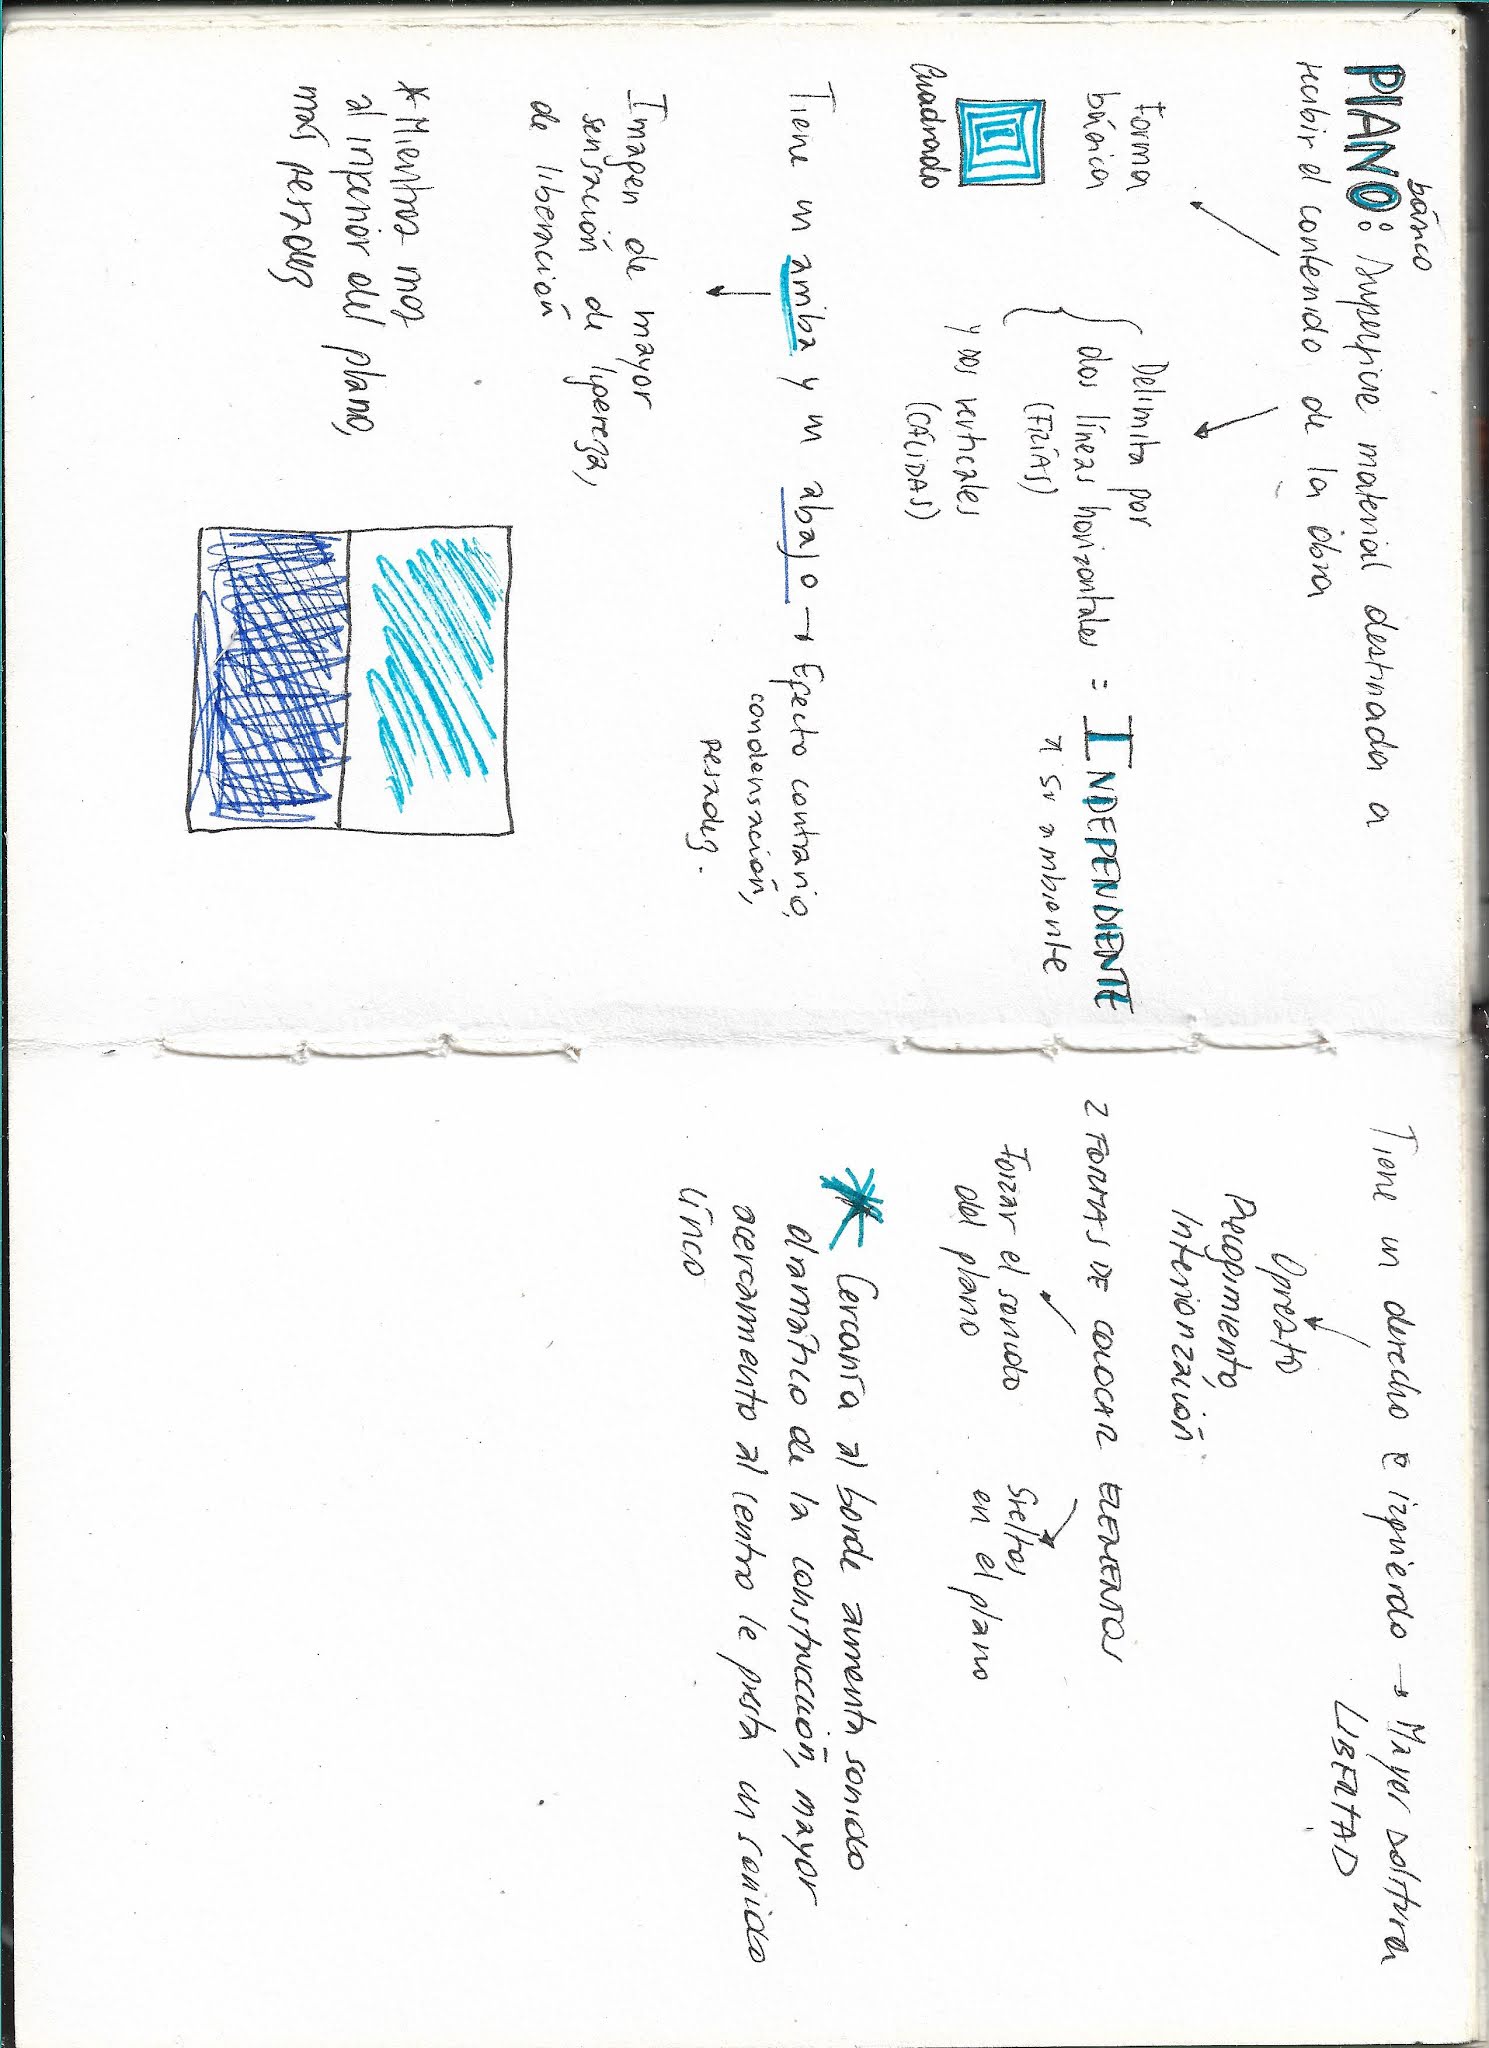 básico
PLANO: Superficie material destinada a
recibir el contenido de la obra
Forma
básica
Cuadrado
Delimita por
dos líneas horizontales = INDEPENDIENTE
(FRÍAS)
a su ambiente
y dos verticales
(CÁLIDAS)
Tiene un arriba y un abajo → Efecto contrario,
condensación,
pesadez.
Imagen de mayor
sensación de ligereza,
de liberación
* Mientras mas
al inferior del plano,
más pesadez
Tiene un derecho e izquierdo → Mayor soltura
LIBERTAD
Opresto
Recogimiento,
Interiorización
2 FORMAS DE COLOCAR ELEMENTOS
Forzar el sonido
del plano
Sueltos
en el plano
* Cercanía al borde aumenta sonido
dramático de la construcción, mayor
acercamiento al centro le presta un sonido
lírico